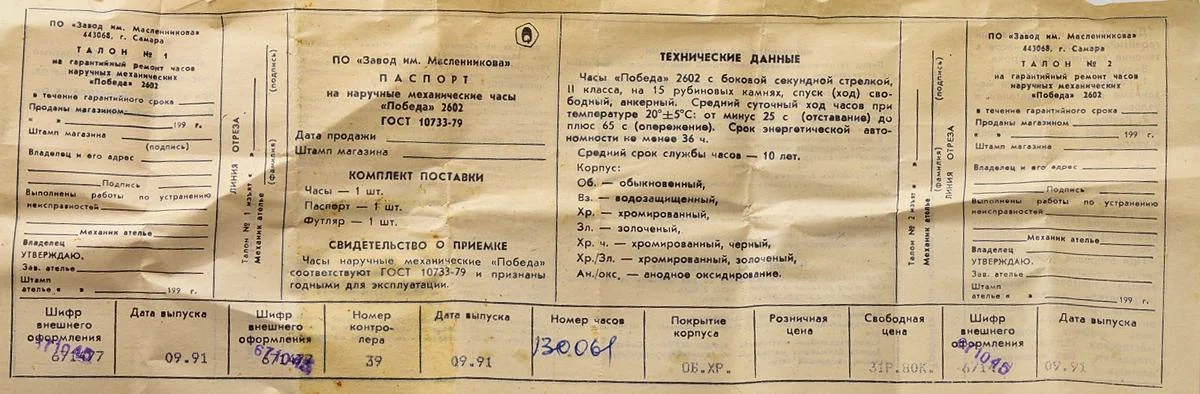 ПО «Завод им. Масленникова»
443068, г. Самара
ТАЛОН № 1
на гарантийный ремонт часов
наручных механических
«Победа» 2602
в течение гарантийного срока
Проданы магазином
« » 199 г.
Штамп магазина
(подпись)
Владелец и его адрес
Подпись
Выполнены работы по устранению
неисправностей
Механик ателье
Владелец
УТВЕРЖДАЮ.
Зав. ателье
Штамп
ателье « » 199 г.
ЛИНИЯ ОТРЕЗА
Талон № 1 изъят « »
Механик ателье
(фамилия)
(подпись)
ПО «Завод им. Масленникова»
ПАСПОРТ
на наручные механические часы
«Победа» 2602
ГОСТ 10733-79
Дата продажи
Штамп магазина
КОМПЛЕКТ ПОСТАВКИ
Часы — 1 шт.
Паспорт — 1 шт.
Футляр — 1 шт.
СВИДЕТЕЛЬСТВО О ПРИЕМКЕ
Часы наручные механические «Победа»
соответствуют ГОСТ 10733-79 и признаны
годными для эксплуатации.
ТЕХНИЧЕСКИЕ ДАННЫЕ
Часы «Победа» 2602 с боковой секундной стрелкой,
II класса, на 15 рубиновых камнях, спуск (ход) сво-
бодный, анкерный. Средний суточный ход часов при
температуре 20°±5°С: от минус 25 с (отставание) до
плюс 65 с (опережение). Срок энергетической авто-
номности не менее 36 ч.
Средний срок службы часов — 10 лет.
Корпус:
Об. — обыкновенный,
Вз. — водозащищенный,
Хр. — хромированный,
Зл. — золоченый,
Хр. ч. — хромированный, черный,
Хр./Зл. — хромированный, золоченый,
Ан./окс. — анодное оксидирование.
ЛИНИЯ ОТРЕЗА
Талон № 2 изъят « »
Механик ателье
(фамилия)
(подпись)
ПО «Завод им. Масленникова»
443068, г. Самара
ТАЛОН № 2
на гарантийный ремонт часов
наручных механических
«Победа» 2602
в течение гарантийного срока
Проданы магазином
« » 199 г.
Штамп магазина
Владелец и его адрес
Подпись
Выполнены работы по устранению
неисправностей
Механик ателье
Владелец
УТВЕРЖДАЮ.
Зав. ателье
Штамп
ателье « » 199 г.
Шифр
внешнего
оформления
671045
Дата выпуска
09.91
Шифр
внешнего
оформления
671045
Номер
контро-
лера
39
Дата выпуска
09.91
Номер часов
130061
Покрытие
корпуса
ОБ.ХР.
Розничная
цена
Свободная
цена
31Р.80К.
Шифр
внешнего
оформления
671045
Дата выпуска
09.91